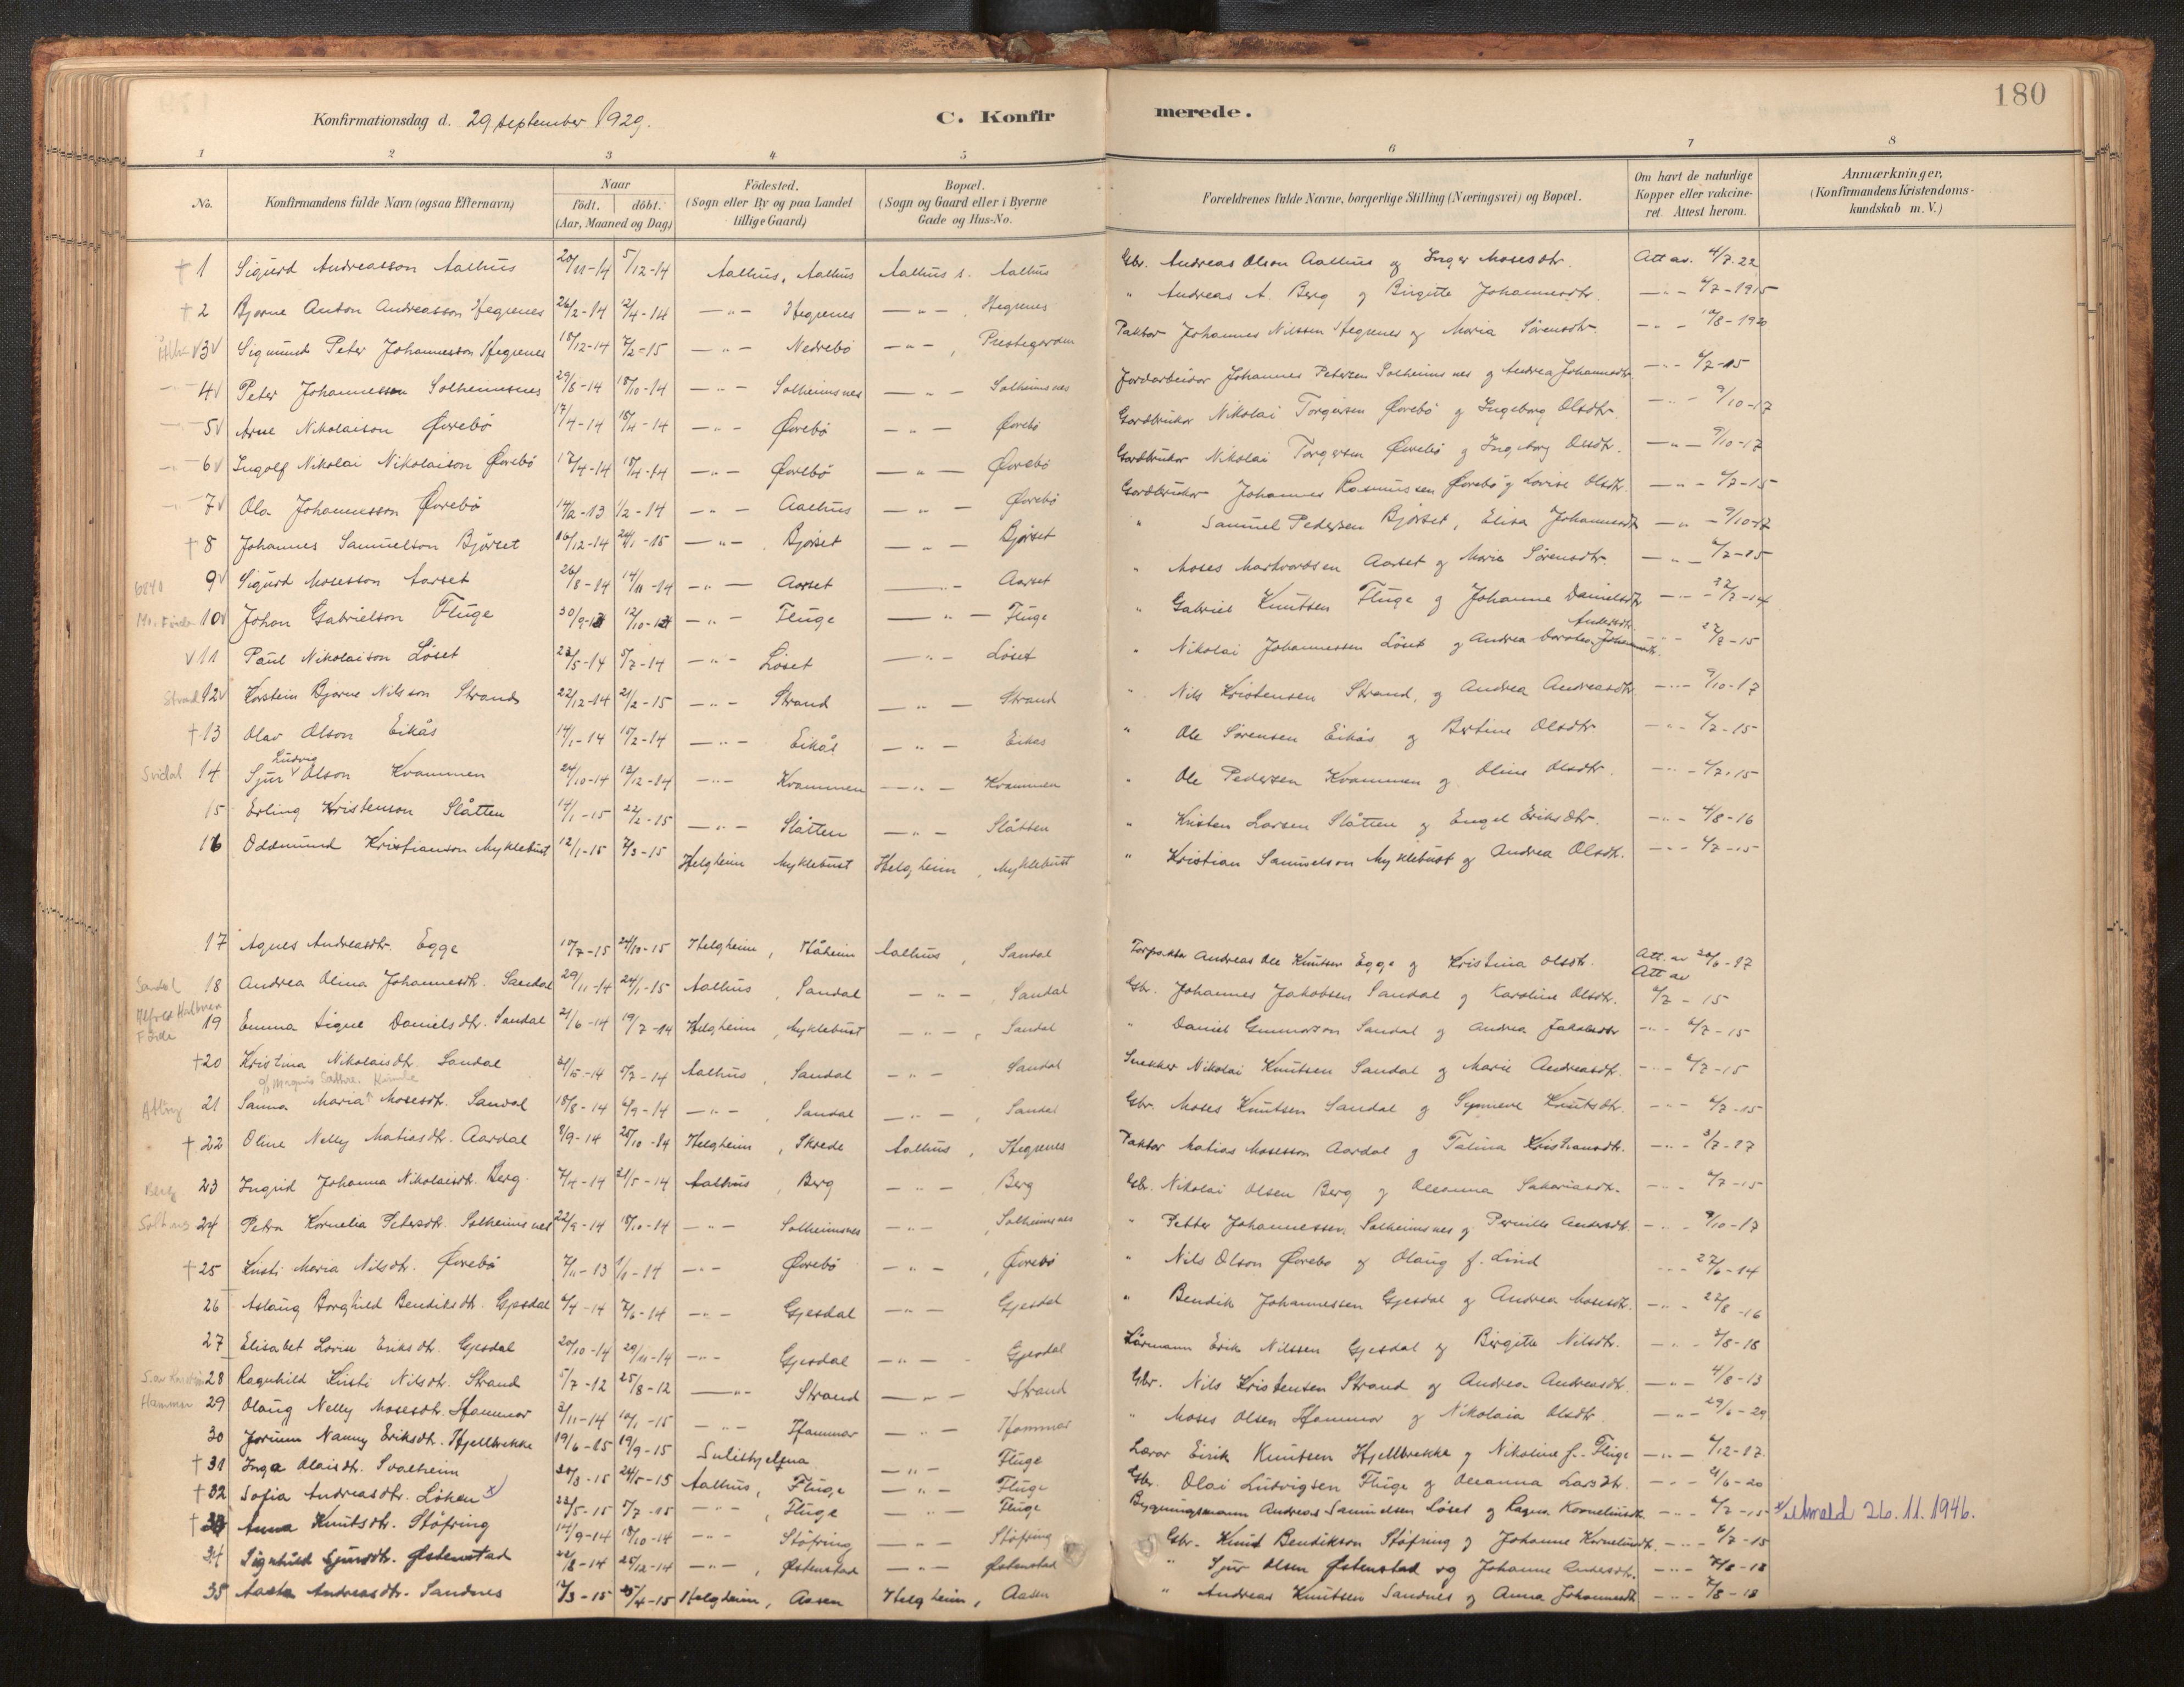 180
Konfirmationsdag d. 29 september 1929.
C. Konfirmerede.
1 2 3 4 5 6 7 8
No.
Konfirmandens fulde Navn (ogsaa Efternavn)
Naar
födt. döbt.
(Aar, Maaned og Dag)
Födested.
(Sogn eller By og paa Landet tillige Gaard)
Bopæl.
(Sogn og Gaard eller i Byerne Gade og Hus-No.
Forældrenes fulde Navne, borgerlige Stilling (Næringsvei) og Bopæl.
Om havt de naturlige Kopper eller vakcineret. Attest herom.
Anmærkninger,
(Konfirmandens Kristendomskundskab m. V.)
† 1 Sigurd Andreasson Aalhus 20/11-14 5/12-14 Aalhus, Aalhus Aalhus s. Aalhus Gbr. Andreas Olson Aalhus og Inger Mosesdtr. Att av. 4/7.22
† 2 Bjarne Anton Andreasson Hegrenes 26/2-14 12/4-14 —"— Hegrenes —"—, Hegrenes " Andreas A. Berg og Birgitte Johannesdtr. —"— 6/7-1915
3 v Sigmund Peter Johannesson Hegrenes 18/12-14 7/2-15 —"— Nedrebö —"—, Prestegarden Paktar Johannes Nilssen Hegrenes og Maria Sörensdtr. —"— 10/8-1920
4 v Peter Johannesson Solheimsnes 29/8-14 18/10-14 —"— Solheimsnes —"— Solheimsnes Jordarbeidar Johannes Petersen Solheimsnes og Andrea Johannesdtr. —"— 6/7-15
5 v Arne Nikolaison Øvrebö 17/4-14 18/4-14 —"— Øvrebö —"— Øvrebö Gardbrukar Nikolai Torgersen Øvrebö og Ingeborg Olsdtr. —"— 9/10-17
6 v Ingolf Nikolai Nikolaison Øvrebö 17/4-14 18/4-14 —"— Øvrebö —"— Øvrebö Gardbrukar Nikolai Torgersen Øvrebö og Ingeborg Olsdtr. —"— 9/10-17
7 v Ola Johannesson Øvrebö 14/12-13 1/2-14 —"— Aalhus —"— Øvrebö Gardbrukar Johannes Rasmussen Øvrebö og Lovise Olsdtr. —"— 6/7-15
† 8 Johannes Samuelson Bjørset 16/12-14 24/1-15 —"— Bjørset —"— Bjørset " Samuel Pedersen Bjørset, Elisa Johannesdtr —"— 9/10-17
9 v Sigurd Mosesson Aarset 26/8-14 14/11-14 —"— Aarset —"— Aarset " Moses Markvardsen Aarset og Marie Sörensdtr. —"— 6/7-15
10 v Johan Gabrielson Fluge 30/9-13 12/10-13 —"— Fluge —"— Fluge " Gabriel Knutsen Fluge og Johanne Danielsdtr —"—
v 11 Paul Nikolaison Löset 23/5-14 5/7-14 —"— Löset —"— Löset " Nikolai Johannessen Löset og Andrea Dorotea Andersdtr. —"—
Strand 12 v Torstein Bjarne Nilsson Strand 22/12-14 21/2-15 —"— Strand —"— Strand " Nils Kristensen Strand, og Andrea Andreasdtr. —"— 9/10-17
† 13 Olav Olson Eikås 14/1-14 15/2-14 —"— Eikås —"— Eikås " Ole Sørensen Eikås og Bertine Olsdtr —"— 6/7-15
Svidal 14 Sjur Ludvig Olson Kvammen 24/10-14 12/12-14 —"— Kvammen —"— Kvammen " Ole Pedersen Kvammen og Oline Olsdtr. —"— 6/7-15
15 Erling Kristenson Slåtten 14/1-15 22/2-15 —"— Slåtten —"— Slåtten " Kristen Larsen Slåtten og Engel Eriksdtr. —"— 4/8-16
16 Oddmund Kristianson Myklebust 12/1-15 7/3-15 Helgheim Myklebust Helgheim, Myklebust " Kristian Samuelson Myklebust og Andrea Olsdtr. —"— 6/7-15
17 Agnes Andreasdtr. Egge 10/7-15 24/10-15 Helgheim, Håheim Aalhus, Sandal Andreas Ole Knutsen Egge og Kristina Olsdtr. Att. av
Sandal 18 Andrea Olina Johannesdtr. Sandal 29/11-14 24/1-15 Aalhus, Sandal —"—, Sandal Gbr. Johannes Jakobsen Sandal og Karoline Olsdtr. Att av 6/7-15
Förde 19 Emma Signe Danielsdtr. Sandal 21/6-14 19/7-14 Helgheim, Myklebust —"—, Sandal " Daniel Gunnarson Sandal og Andrea Jakobsdtr —"— 6/7-15
† 20 Kristina Nikolaisdtr. Sandal 31/5-14 5/7-14 Aalhus, Sandal —"— Sandal Snekker Nikolai Knutsen Sandal og Marie Andreasdtr. —"— 6/7-15
21 Sanna Maria Mosesdtr. Sandal 18/8-14 6/9-14 —"— Sandal —"—, Sandal Gbr. Moses Knutsen Sandal og Synneve Knutsdtr. —"— 6/7-15
† 22 Oline Nelly Matiasdtr. Aardal 8/9-14 25/10-14 Helgheim, Skrede Aalhus, Hegrenes Paktar Matias Mosesson Aardal og Talina Kristiansdtr. —"— 3/7-17
Berg 23 Ingrid Johanna Nikolaisdtr. Berg 7/4-14 21/5-14 Aalhus, Berg —"—, Berg Gbr. Nikolai Olsen Berg og Oleanna Sakariasdtr. —"— 6/7-15
24 Petra Kornelia Petersdtr. Solheimsnes 22/9-14 18/10-14 —"— Solheimsnes —"—, Solheimsnes " Petter Johannessen Solheimsnes og Pernille Andersdtr. —"— 9/10-17
† 25 Kristi Maria Nilsdtr. Øvrebö 7/11-13 1/1-14 —"— Øvrebö —"—, Øvrebö " Nils Olson Øvrebö og Olaug f. Lind —"— 27/6-14
26 Aslaug Borghild Bendiksdtr. Gjesdal 6/4-14 7/6-14 —"— Gjesdal —"— Gjesdal " Bendik Johannessen Gjesdal og Andrea Mosesdtr. —"— 22/8-16
27 Elisabet Lovise Eriksdtr. Gjesdal 20/10-14 29/11-14 —"— Gjesdal —"— Gjesdal Erik Nilssen Gjesdal og Birgitte Nilsdtr. —"— 7/8-18
28 Ragnhild Kristi Nilsdtr. Strand 5/7-12 25/8-12 —"— Strand —"— Strand Gbr. Nils Kristensen Strand og Andrea Andreasdtr. —"— 4/8-13
Hammer 29 Olaug Nelly Mosesdtr. Hammar 2/11-14 10/1-15 —"— Hammar —"— Hammar " Moses Olsen Hammar og Nikolaia Olsdtr. —"— 29/6-29
30 Jorunn Nanny Eriksdtr. Hjellbrekke 19/6-15 19/9-15 Sulitshjelma —"— Fluge Lærar Eirik Knutsen Hjellbrekke og Nikoline f. Fluge —"— 6/12-17.
† 31 Inga Olaisdtr. Svalheim 20/3-15 24/5-15 Aalhus, Fluge —"— Fluge Gbr. Olai Ludvigsen Fluge og Oleanna Larsdtr. —"— 21/6-20
† 32 Sofia Andreasdtr. Löken x) 22/5-15 5/7-15 —"—, Fluge —"— Fluge Bygningsmann Andreas Samuelsen Löset og Ragna Kornelisdtr. —"— 6/7-15 x/utmeld 26.11.1946.
† 33 Anna Knutsdtr. Stöfring 14/9-14 18/10-14 —"— Stöfring —"— Stöfring Gbr. Knut Bendikson Stöfring og Johanne Kornelisdtr. —"— 6/7-15
34 Signhild Sjursdtr. Østenstad 22/8-14 25/12-14 —"—, Østenstad —"— Østenstad " Sjur Olsen Østenstad og Johanne Andersdtr. —"— 7/8-18
35 Aasta Andreasdtr. Sandnes 17/3-15 5/4-15 Helgheim, Aasen Helgheim, Aasen " Andreas Knutsen Sandnes og Anna Johannesdtr —"— 7/8-18